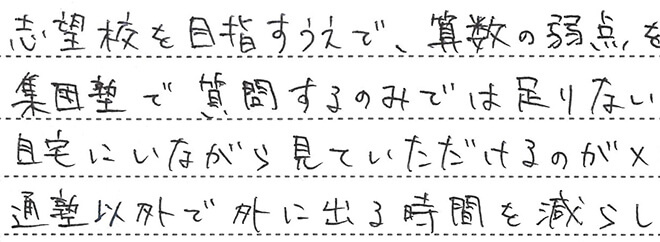 志望校を目指すうえで、算数の弱点を
集団塾で質問するのみでは足りない
自宅にいながら見ていただけるのがメ
通塾以外で外に出る時間を減らし